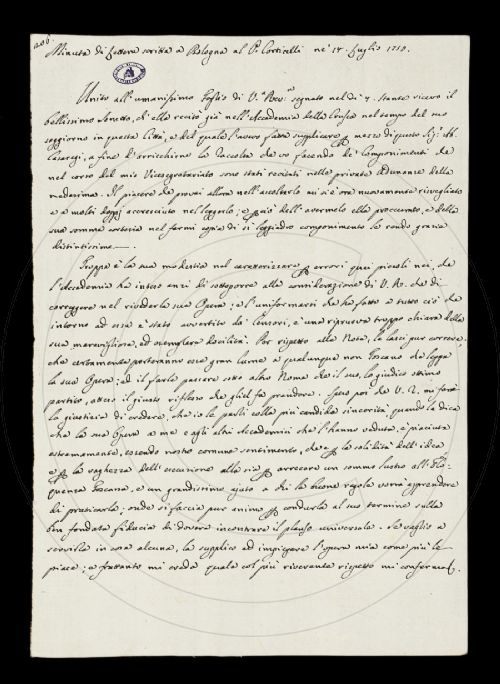 Minuta di Lettera scritta a Bologna al P. Corticelli ne' 14. Luglio 1750.
Unito all'umanissimo foglio di V.ª Rev.ª segnato nel dì 7. stante ricevo il
bellissimo Sonetto, ch'ella recitò già nell'Accademia della Crusca nel tempo del suo
soggiorno in questa Città, e del quale l'avevo fatta supplicare per mezzo di questo Sig.r Ab.
Casaregi, a fine d'arricchirne la raccolta che vo facendo de' Componimenti che
nel corso del mio Vicesegretariato sono stati recitati nelle private Adunanze della
medesima. Il piacere che provai allora nell'ascoltarlo mi si è ora nuovamente risvegliato
e a molti doppj accresciuto nel leggerlo; e perciò dell'avermelo ella proccurato, e della
sua somma cortesia nel farmi copia di sì leggiadro componimento le rendo grazie
distintissime.
Troppa è la sua modestia nel caratterizzare per errori quei piccoli nei, che
l'Accademia ha inteso anzi di sottoporre alla considerazione di V. R. che di
correggere nel riveder la sua Opera; e l'uniformarsi che ha fatto a tutto ciò che
intorno ad essa è stato avvertito da' Censori, è una riprova troppo chiara della
sua maravigliosa, ed esemplare docilità. Per rispetto alle Note, le lasci pur correre,
che certamente porteranno esse gran lume a qualunque non Toscano che legga
la sua Opera; ed il farle passare sotto altro Nome che il suo, lo giudico ottimo
partito, atteso il giusto riflesso che gliel fa prendere. Spero poi che V. R. mi farà
la giustizia di credere, che io le parli colla più candida sincerità, quando le dica
che la sua Opera a me e agli altri Accademici che l'hanno veduta, è piaciuta
estremamente, essendo nostro comune sentimento, che per la solidità dell'idea
e per la vaghezza dell'esecuzione ella sia per arrecare un sommo lustro all'Elo-
quenza Toscana, e un grandissimo ajuto a chi le buone regole vorrà apprendere
di praticarla; onde si faccia pur animo per condurla al suo termine sulla
ben fondata fiducia di dovere incontrare il plauso universale. Se vaglio a
servirla in cosa alcuna, la supplico ad impiegare l'opera mia come più le
piace; e frattanto mi creda quale col più riverente rispetto mi confermo.